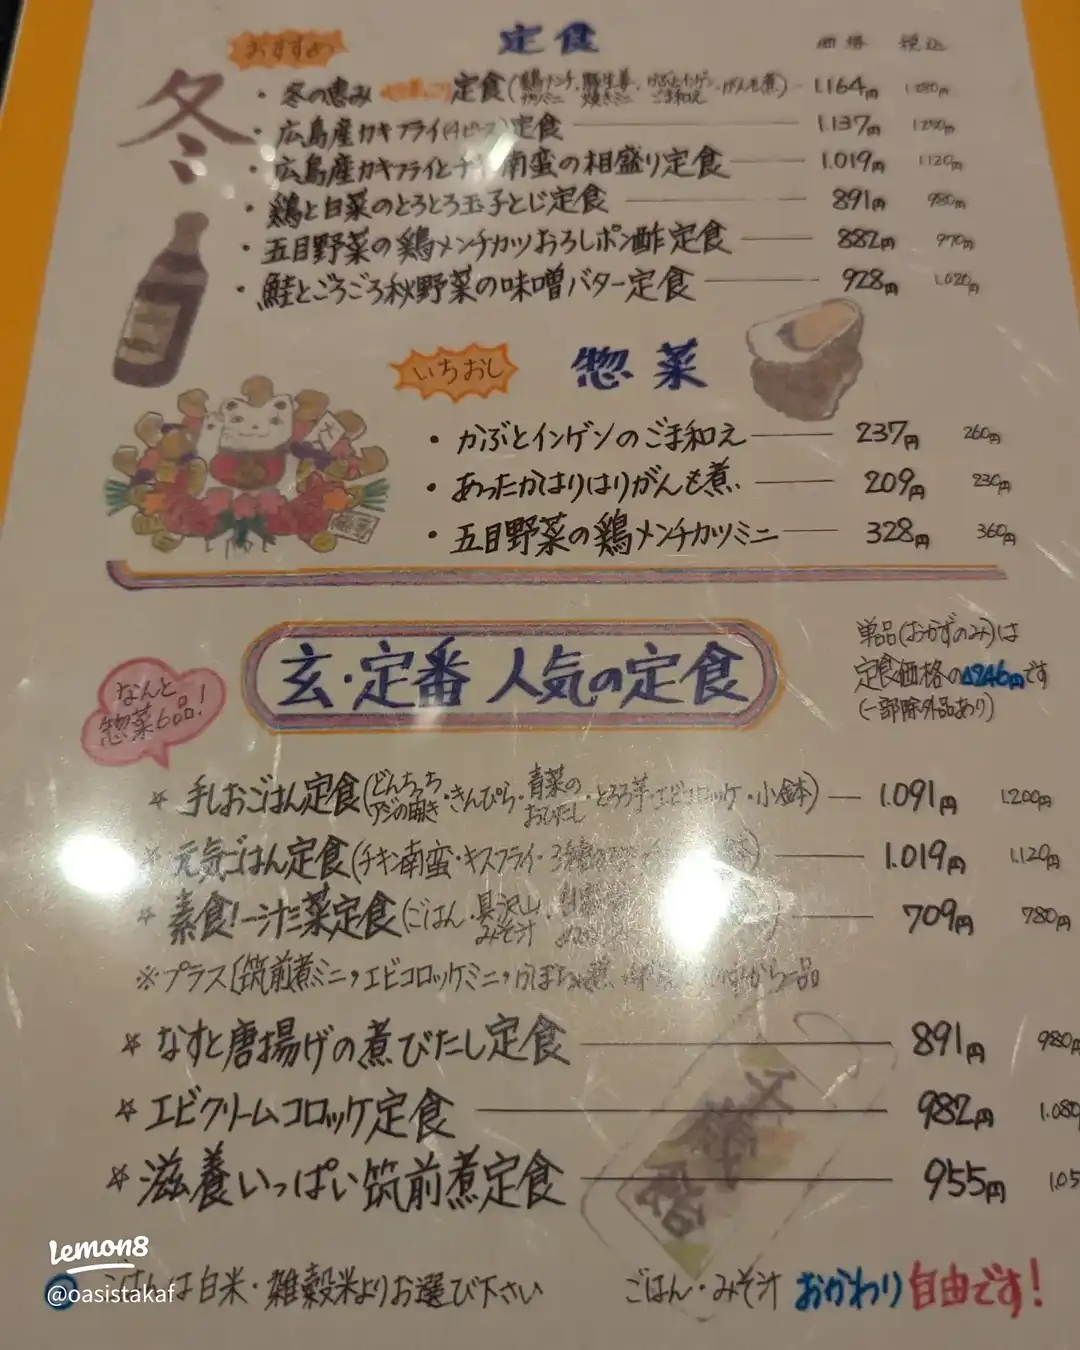 おすすめ
定食 価格 税込
冬
・冬の恵み 定食(鶏メンチカツミニ・豚生姜焼きミニ・かぶとインゲンごま和え・がんも煮) 1.164円 1.280円
・広島産カキフライ 定食 1.137円 1.250円
・広島産カキフライとチキン南蛮の相盛り定食 1.019円 1.120円
・鶏と白菜のとろとろ玉子とじ定食 891円 980円
・五目野菜の鶏メンチカツおろしポン酢定食 882円 970円
・鮭とごろごろ秋野菜の味噌バター定食 928円 1.020円
いちおし 惣菜
・かぶとインゲンのごま和え 237円 260円
・あったかはりはりがんも煮. 209円 230円
・五目野菜の鶏メンチカツミニ 328円 360円
玄・定番 人気の定食
単品(おかずのみ)は
定食価格の△246円です
(一部除外品あり)
なんと
惣菜6品!
☆ 手しおごはん定食(どんちっちアジの開き・きんぴら・青菜のおひたし・とろろ芋・エビコロッケ・小鉢) 1.091円 1.200円
☆ 元気ごはん定食(チキン南蛮・キスフライ・3種の 1.019円 1.120円
☆ 素食!一汁三菜定食(ごはん・具沢山みそ汁・ 709円 780円
※プラス[筑前煮ミニ,エビコロッケミニ,かぼちゃ煮 から一品
☆ なすと唐揚げの煮びたし定食 891円 980円
☆ エビクリームコロッケ定食 982円 1.080
☆ 滋養いっぱい筑前煮定食 955円 1.05
ごはんは白米・雑穀米よりお選び下さい
ごはん・みそ汁 おかわり自由です!
Lemon8
@oasistakaf